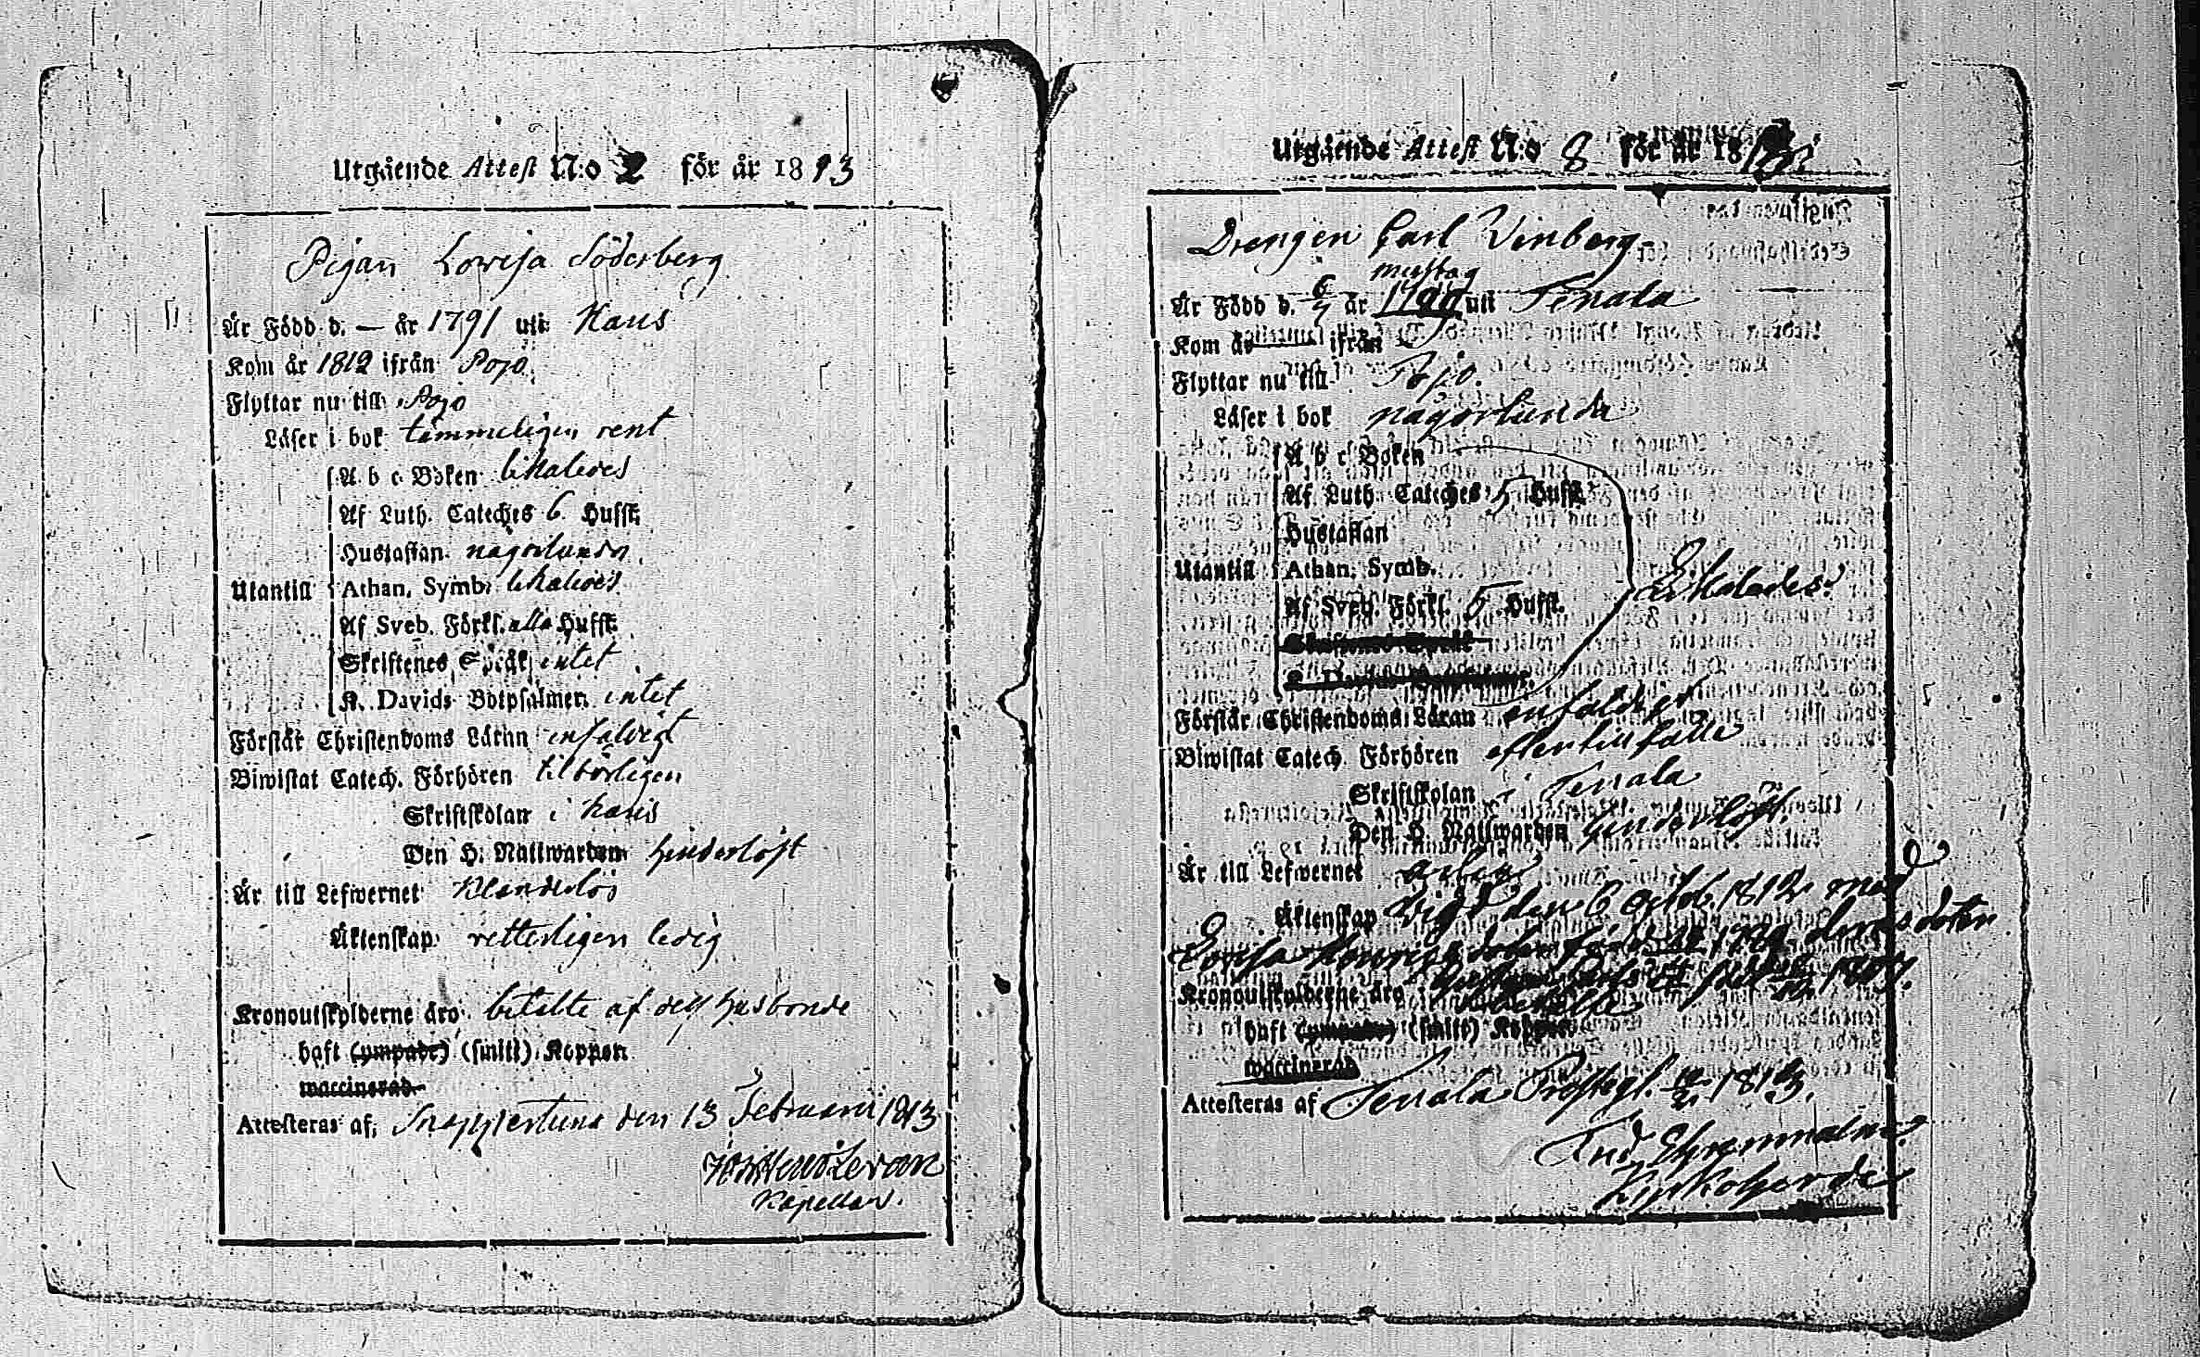 Utgående Attest N:o 2 för år 1813
Pigan Lovisa Söderberg
Är Född d. — år 1791 uti Karis
Kom år 1812 ifrån Pojo
Flyttar nu till Pojo
Läser i bok tämmeligen rent
A b c Boken likaledes
Af Luth. Cateches 6 Hufst.
Hustaflan någorlunda
Utantill Athan. Symb. likaledes
Af Sveb. Förkl. alla Hufst.
Skriftenes Språk intet
K. Davids Botpsalmer intet
Förstår Christendoms Läran enfaldigt
Biwistat Catech. Förhören tilbörligen
Skriftskolan i Karis
Den H. Nattwarden hinderlöst
Är till Lefwernet Klanderlös
Äktenskap retterligen ledig
Kronoutskylderne äro betalte af dess husbonde
haft (ympade) (smitt) Koppor
waccinerad
Attesteras af Snappertuna den 13 Februarii 1813
Kapellan.
Utgående Attest N:o 8 för år 18
Drengen Carl Vinberg
Är Född d. 6/7 år uti Tenala
Kom år ifrån
Flyttar nu till Pojo.
Läser i bok någorlunda
A b c Boken
Af Luth. Cateches 5 Hufst.
Hustaflan
Utantill Athan. Symb. Likaledes.
Af Sveb. Förkl. 5 Hufst.
Förstår Christendoms Läran enfaldigt
Biwistat Catech. Förhören efter tillfälle
Skriftskolan i Tenala
Den H. Nattwarden hinderlöst.
Är till Lefwernet ärlig
Äktenskap Vigd den 6 Octob. 1812 med
Lovisa född
Kronoutskylderne äro
haft (ympade) (smitt) Koppor
waccinerad
Attesteras af Tenala Prostegl. 1813.
Kyrkoherde